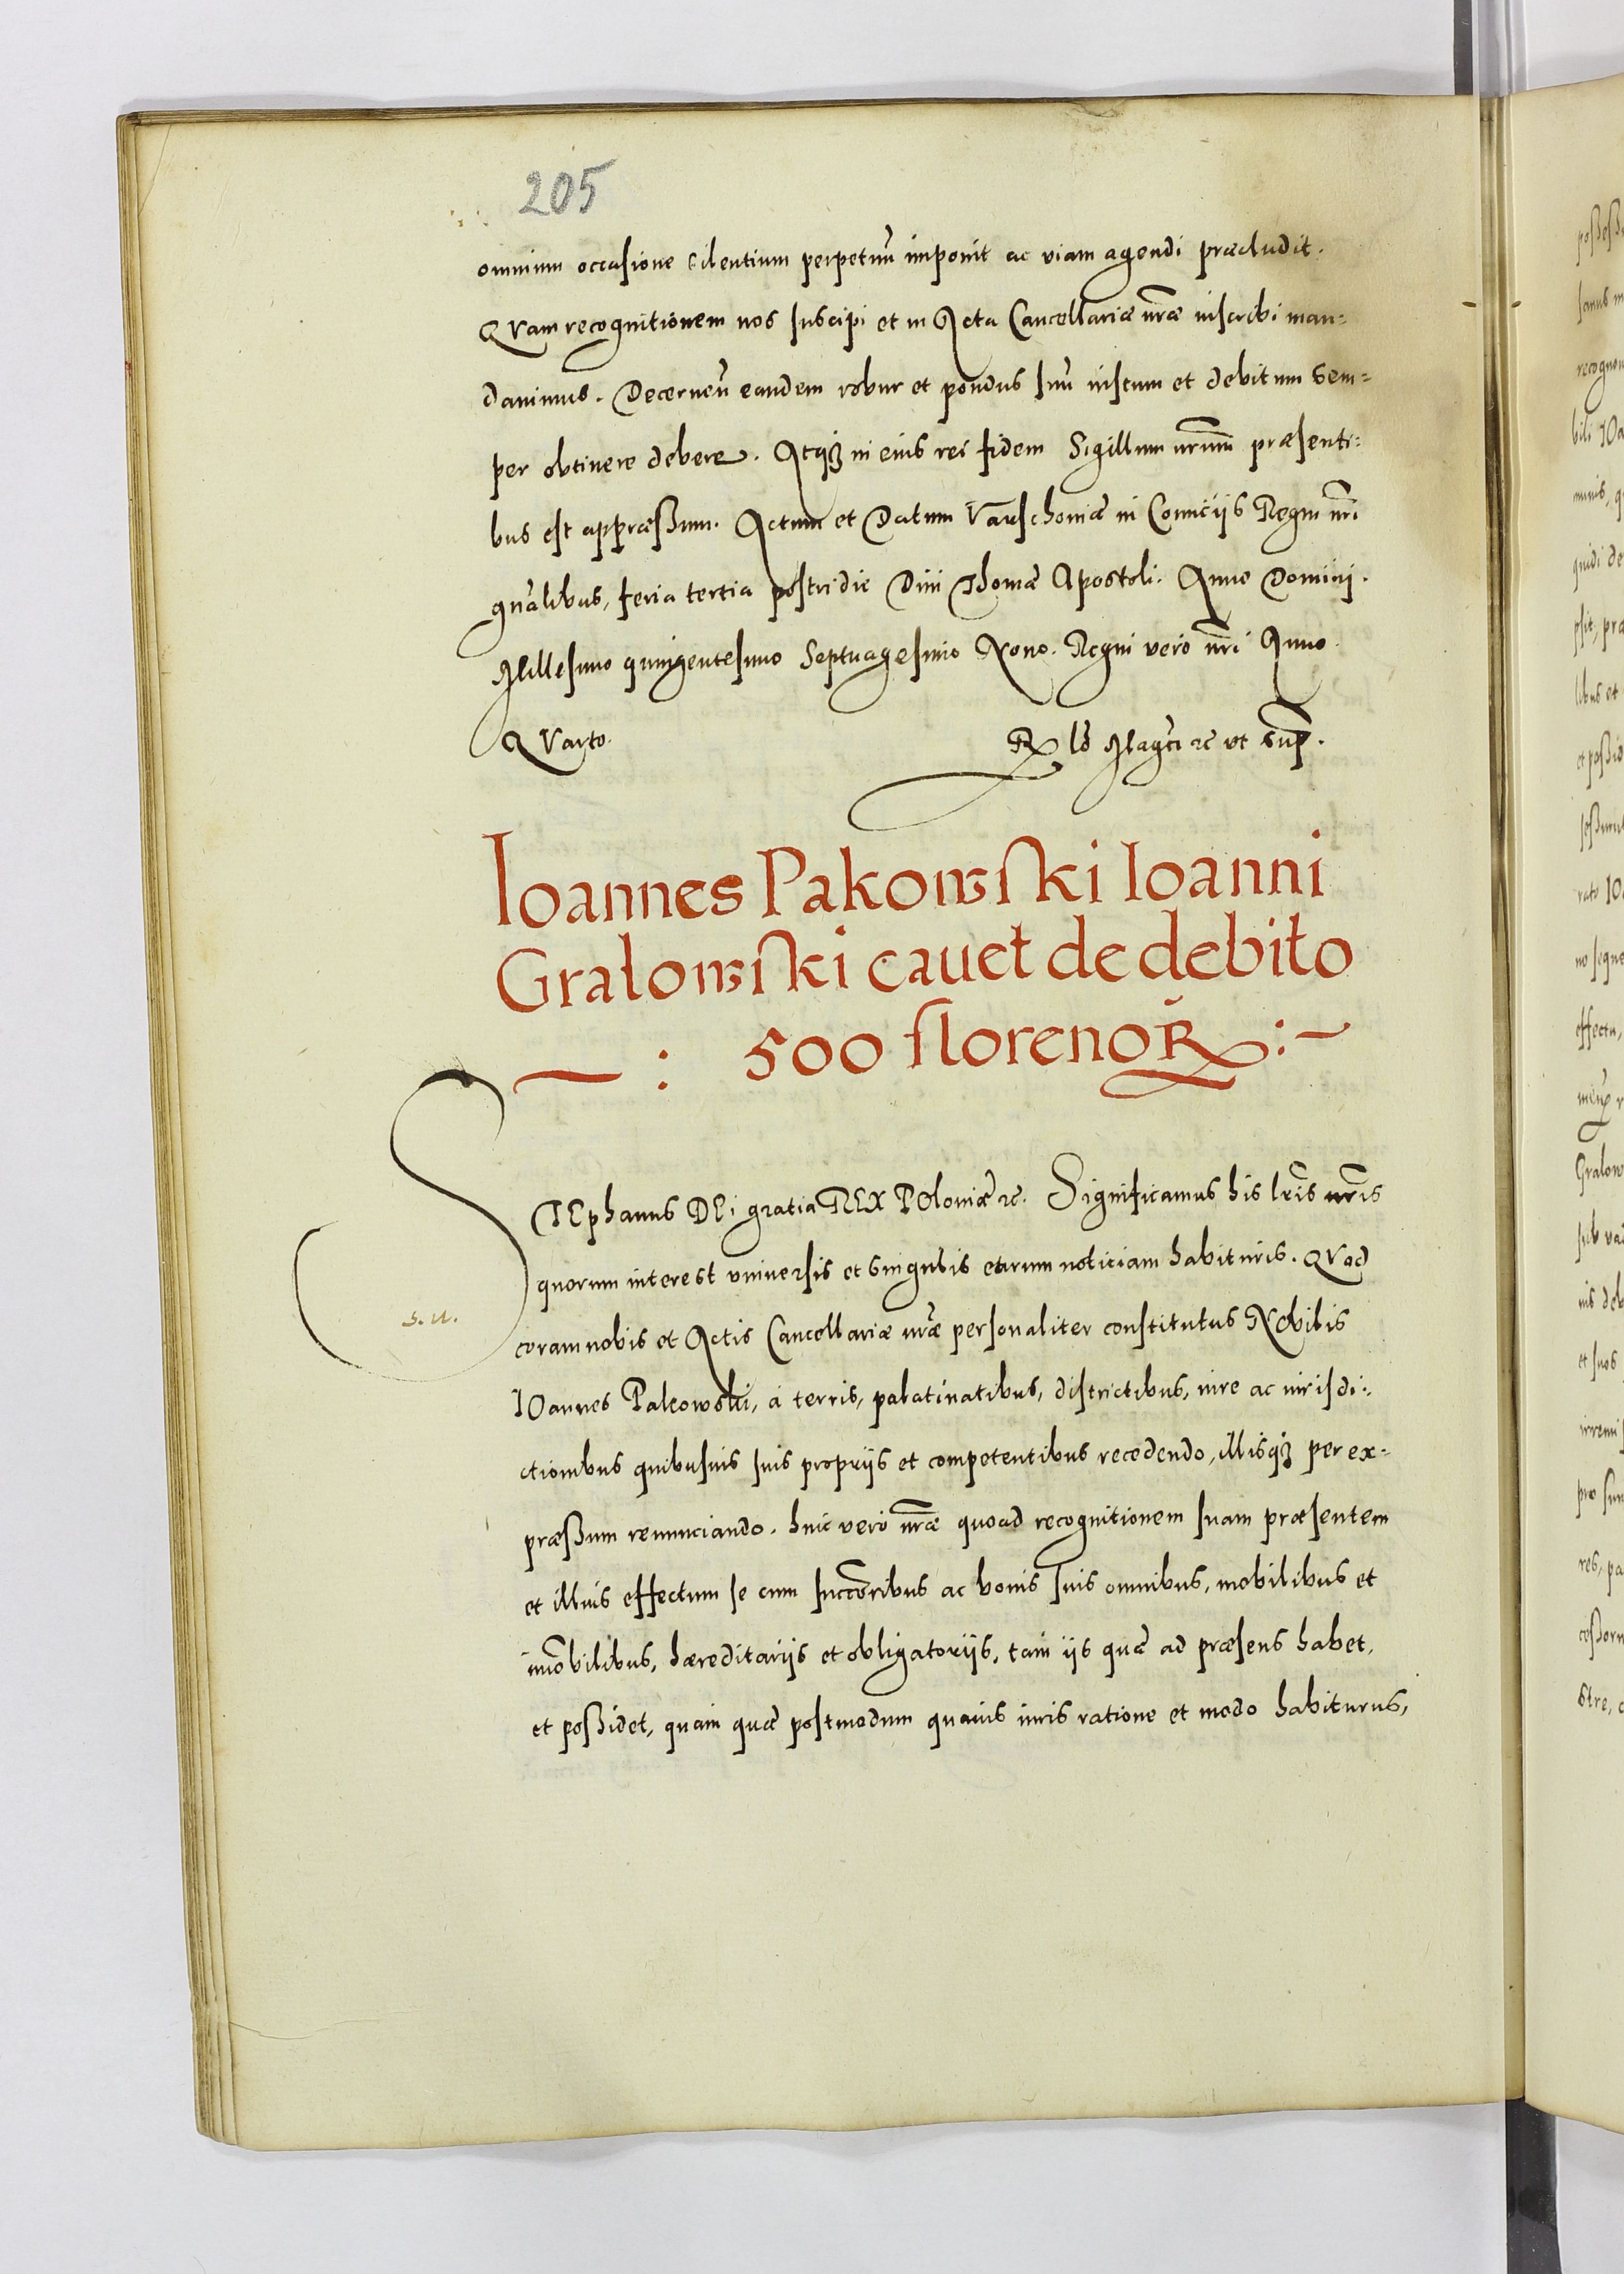 205
omnium occasione silentium perpetuũ imponit ac viam agendi præcludit.
QVam recognitionem nos suscipi et in Acta Cancellariæ nr̃æ inscribi man=
dauimus. Decerneñ eandem robur et pondus suũ iustum et debitum sem=
per obtinere debere. Atq₃ in eius rei fidem Sigillum nr̃um præsenti=
bus est appræßum. Actum et Datum Varschouiæ in Comicijs Regni nr̃i
gnãlibus, feria tertia postridie Diui Thomæ Apostoli. Anno Domini.
Millesimo quingentesimo Septuagesimo Nono. Regni vero nr̃i Anno
QVarto. Rꝫ lõ Magci ꝛc ut sup̃.
Ioannes Pakowſki Ioanni
Gralowſki cauet de debito
~ : 500 florenoꝝ : ~
STEphanus DEi gratia REX POloniæ ꝛc. Significamus his lr̃is nr̃is
quorum interest vniuersis et singulis earum noticiam habituris. QVod
coram nobis et Actis Cancellariæ nr̃æ personaliter constitutus NObilis
s. u.
IOannes Pakowski, á terris, palatinatibus, districtibus, iure ac iurisdi=
ctionibus quibusuis suis proprijs et competentibus recedendo, illisq₃ per ex=
præßum renunciando. huic vero nr̃æ quoad recognitionem suam præsentem
et illius effectum se cum succõribus ac bonis suis omnibus, mobilibus et
im̃obilibus, hæreditarijs et obligatorijs, tam ijs quæ ad præsens habet,
et poßidet, quam quæ postmodum quauis iuris ratione et modo habiturus,